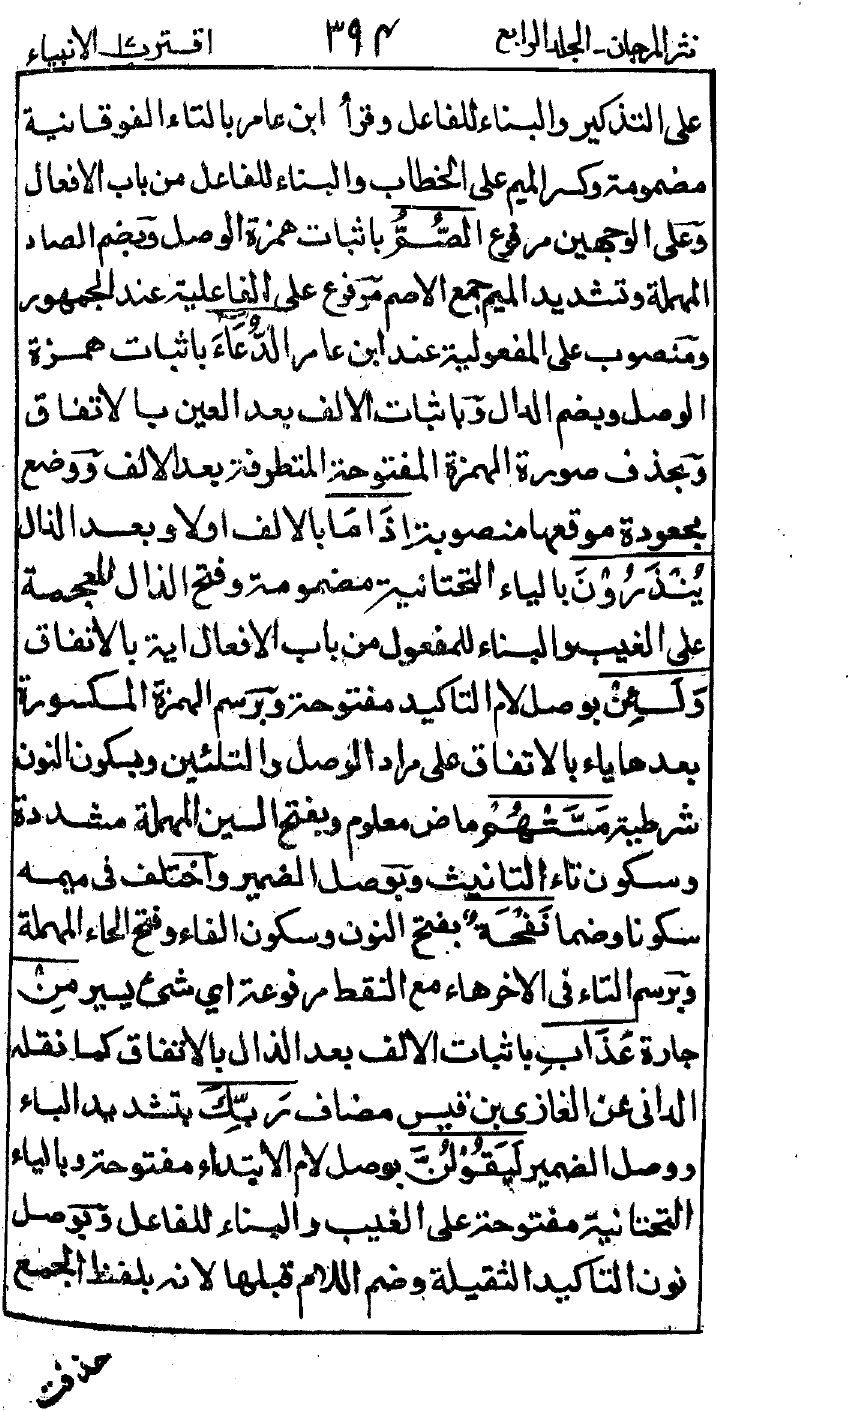 نثر المرجان - المجلد الرابع ٣٩٤ اقترب ١٧ الانبياء
على التذكير والبناء للفاعل وقرأ ابن عامر بالتاء الفوقانية
مضمومة وكسر الميم على الخطاب والبناء للفاعل من باب الافعال
وَعلى الوجهين مرفوع الصُّمُّ باثبات همزة الوصل وَبضم الصاد
المهملة وتشديد الميم جمع الاصم مَرفوع على الفاعلية عند الجمهور
ومَنصوب على المفعولية عند ابن عامر الدُّعَاءَ باثبات همزة
الوصل وبضم الدال وَباثبات الالف بعد العين بالاتفاق
وَبحذف صورة الهمزة المفتوحة المتطرفة بعد الالف وَوضع
مجعودة موقعها منصوبة اِذَا مَا بالالف اولا وبعد الذال
يُنْذَرُوْنَ بالياء التحتانية مضمومة وفتح الذال المعجمة
على الغيب والبناء للمفعول من باب الافعال اية بالاتفاق
وَلَئِنْ بوصل لام التاكيد مفتوحة وَبرسم الهمزة المكسورة
بعدها ياء بالاتفاق على مراد الوصل والتلئين وبسكون النون
شرطية مَسَّتْهُمْ ماض معلوم وبفتح السين المهملة مشددة
وسكون تاء التانيث وبوصل الضمير واختلف في ميمه
سكونا وضما نَفْحَةٌ بفتح النون وسكون الفاء وفتح الحاء المهملة
وَبرسم التاء في الاخر هاء مع النقط مرفوعة اي شئ يسير مِنْ
جارة عَذَابِ باثبات الالف بعد الذال بالاتفاق كما نقله
الدانى عن الغازى بن قيس مضاف رَبِّكَ بتشديد الباء
ووصل الضمير لَيَقُوْلُنَّ بوصل لام الابتداء مفتوحة وبالياء
التحتانية مفتوحة على الغيب والبناء للفاعل وَبوصل
نون التاكيد الثقيلة وضم اللام قبلها لانه بلفظ الجمع
حذفت